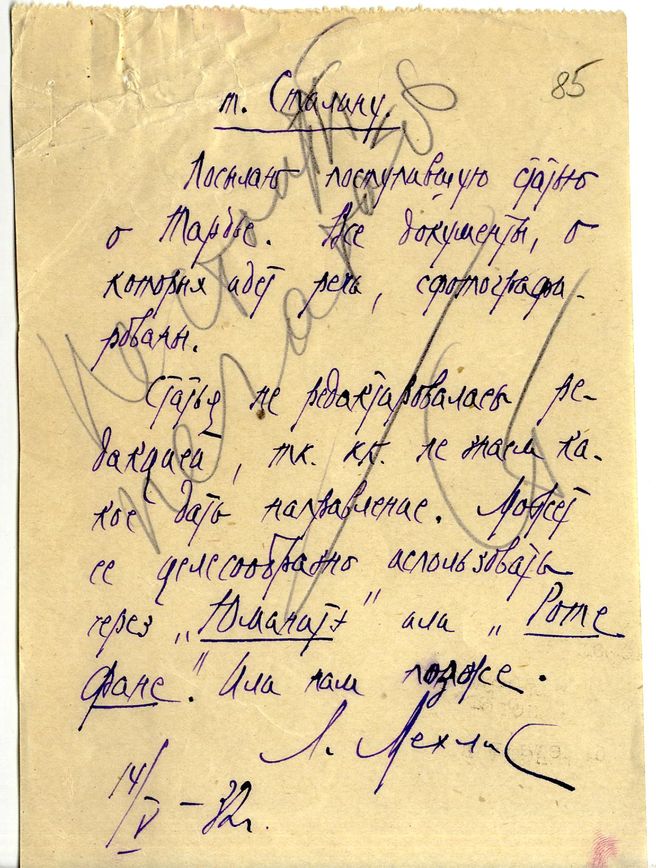 85
т. Сталину.
Посылаю поступившую статью
о Тардье. Все документы, о
которых идет речь, сфотографи-
рованы.
Статья не редактировалась ре-
дакцией, т.к. не знаем ка-
кое дать направление. Может
ее целесообразно использовать
через „Юманитэ" или „Роте
Фане". Или нам позже.
Л. Мехлис
14/V – 32г.
Не стоит печатать